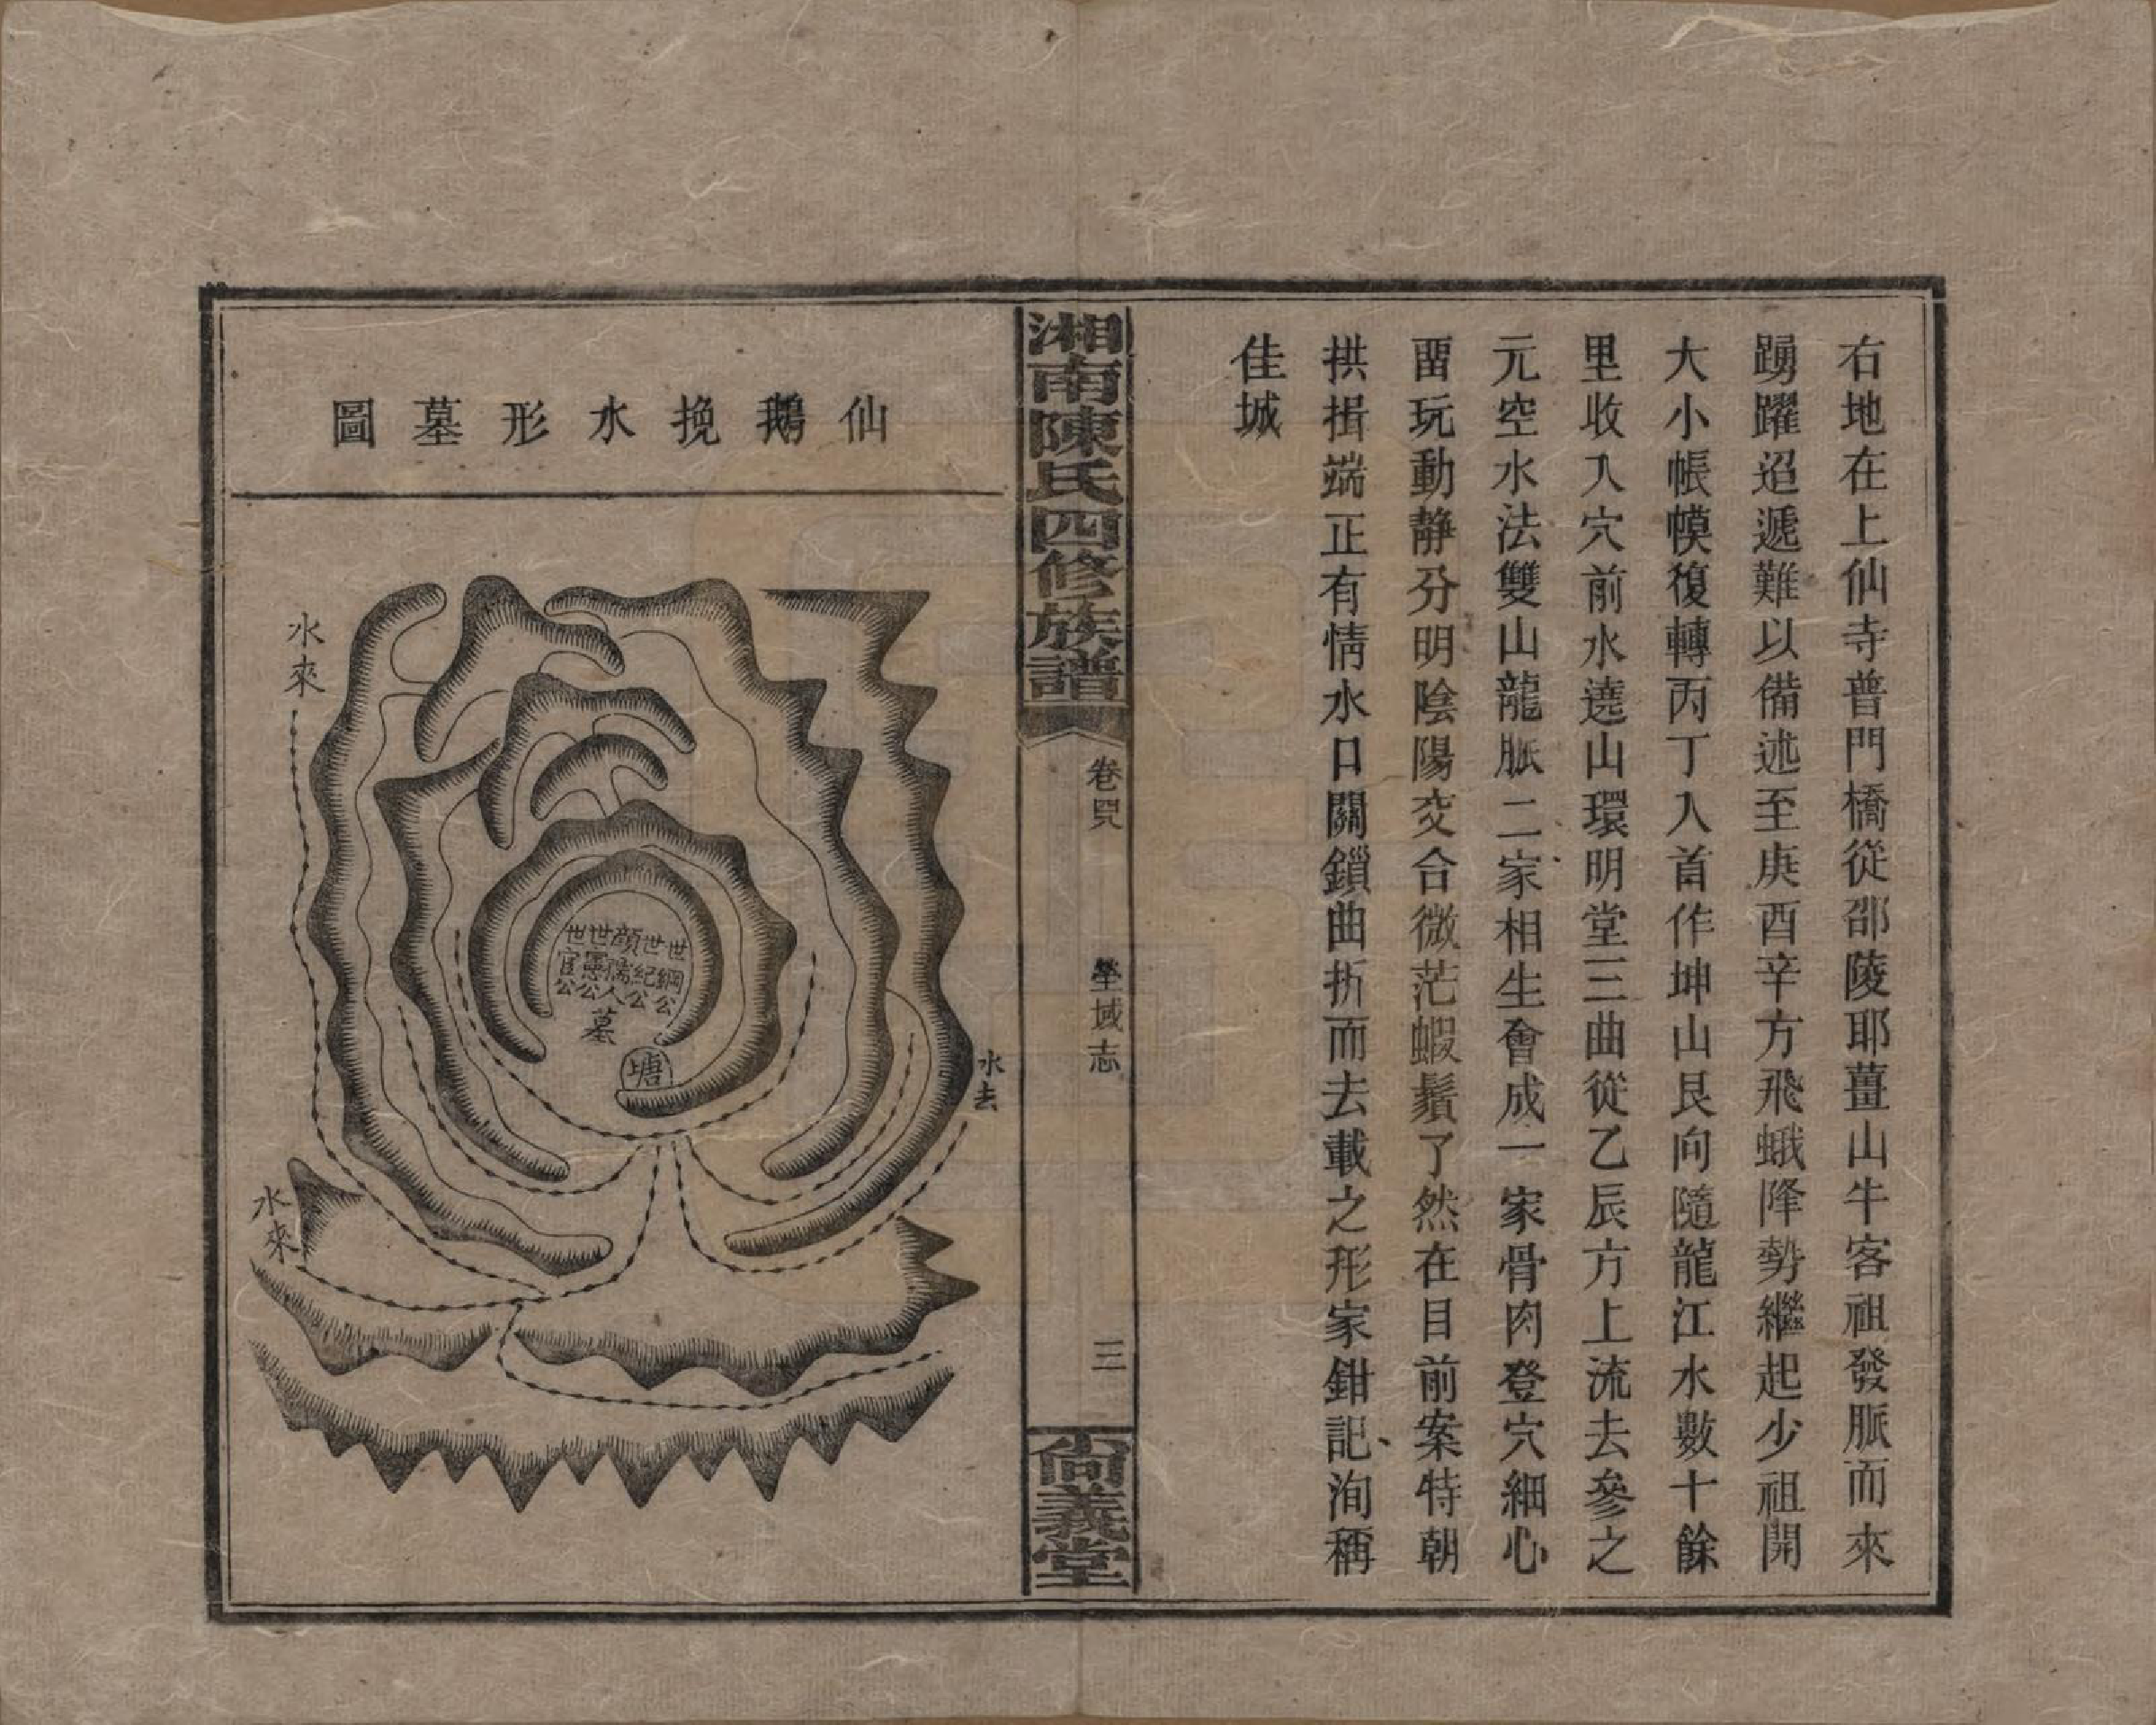 右地在上仙寺普門橋從邵陵耶薑山牛客祖發脈而來
踴躍迢遞難以備述至庚酉辛方飛蛾降勢繼起少祖開
大小帳幙復轉丙丁入首作坤山艮向隨龍江水數十餘
里收入穴前水遶山環明堂三曲從乙辰方上流去參之
元空水法雙山龍脈二家相生會成一家骨肉登穴細心
畱玩動靜分明陰陽交合微茫蝦鬚了然在目前案特朝
拱揖端正有情水口關鎖曲折而去載之形家鉗記洵稱
佳城
湘南陳氏四修族譜
卷
塋域志
三
尚義堂
仙鵝挽水形墓圖
水來
世綱公
世紀公
顏孺人
世憲公
世官公
墓
塘
水去
水來